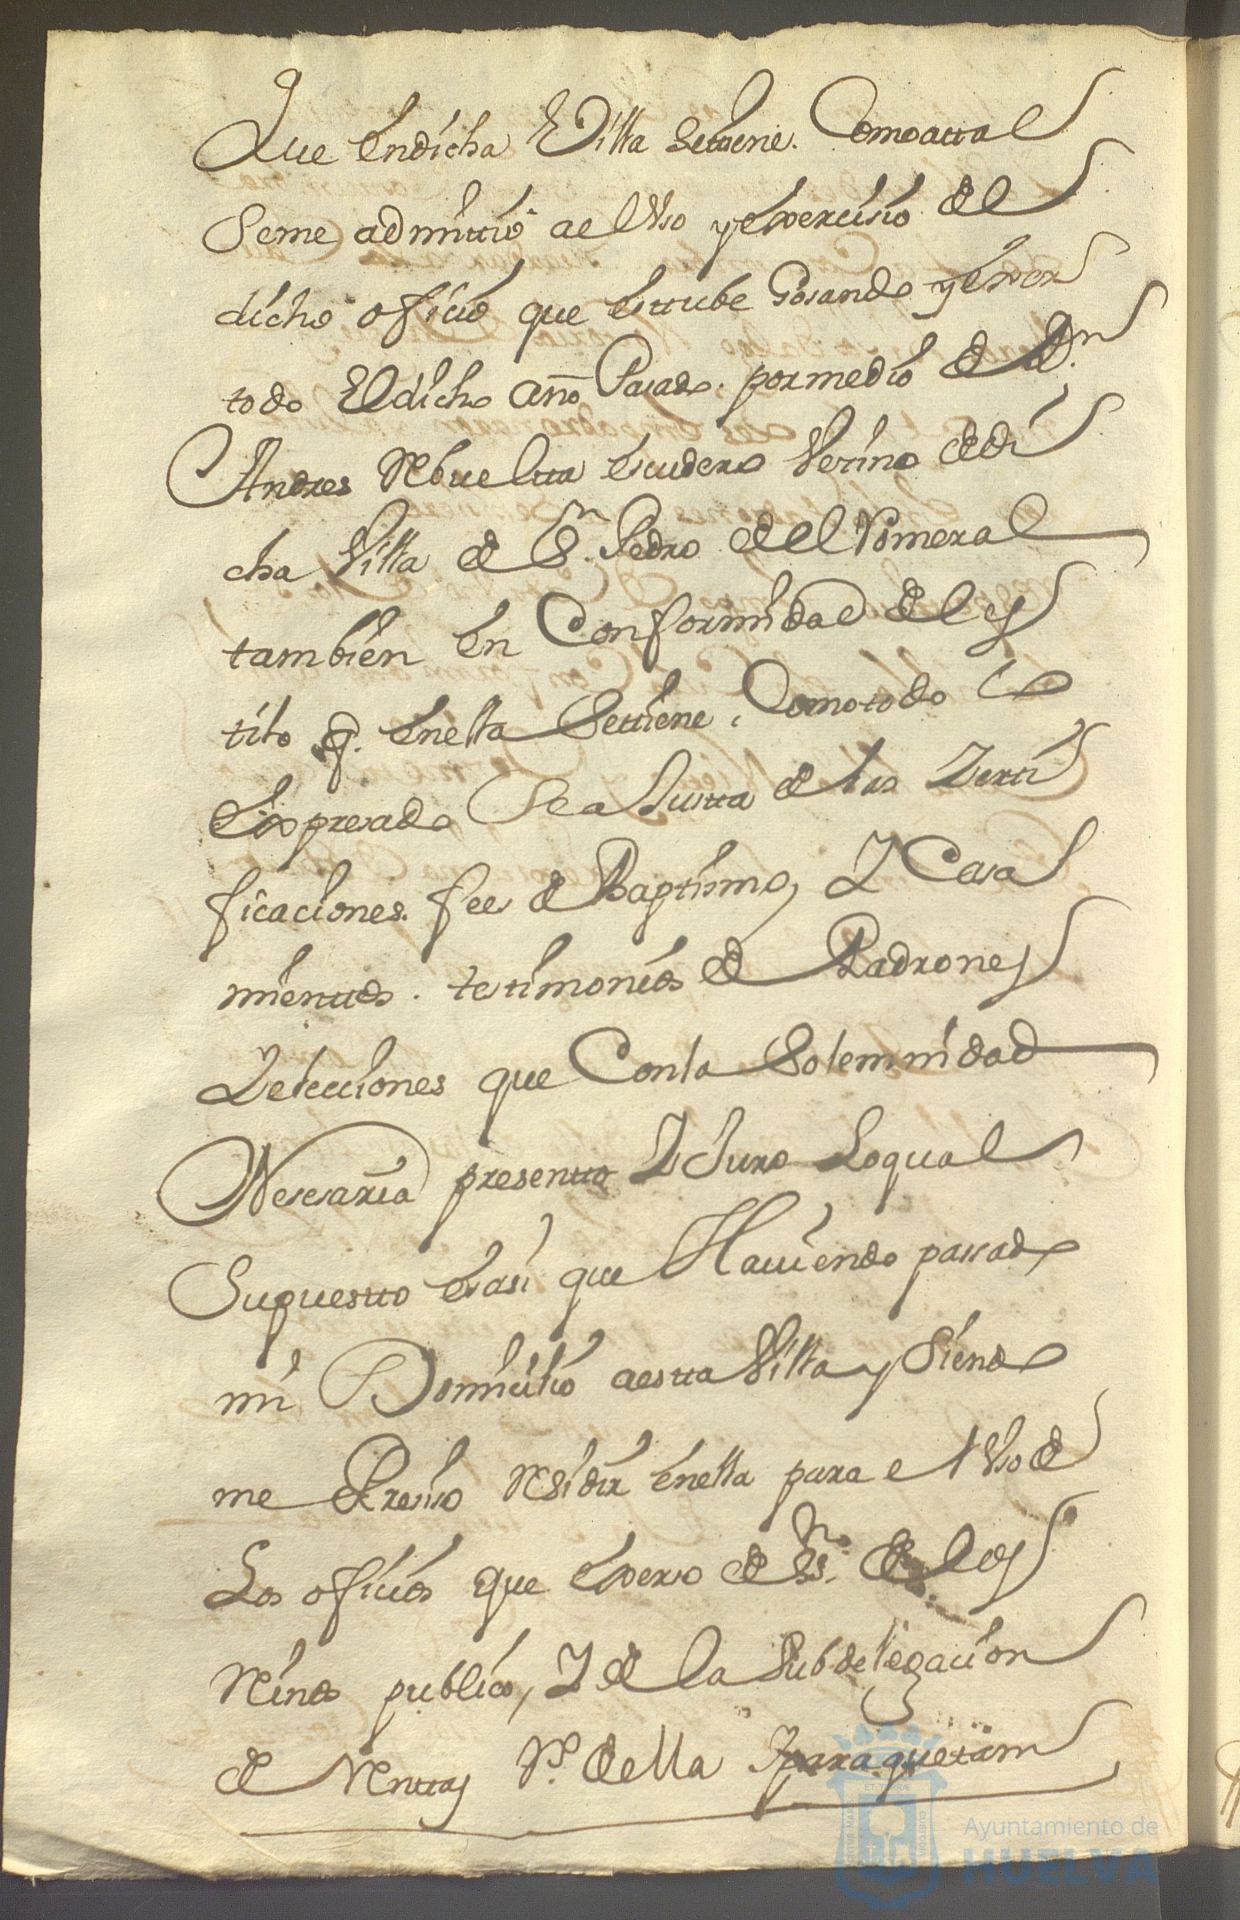 Que En dicha Villa se tiene. Como a tal
se me admittio al Vso y exercisio del
dicho oficio que estube Gosando y exer
todo El dicho año Pasado. por medio de Dn
Andres Rebueltta escudero Vecino de di
cha Villa de Sn. Pedro del Romeral
tambien en Conformidad del es
tilo q. en ella se tiene, Como todo lo
expresado se aJusta de las Zerti
ficaciones. fees de Baptismo, Y Casa
mienttos. testimonios de Padrones
Y elecciones que Con la Solemnidad
Nesesaria presentto Y Juro Lo qual
Supuestto es asi que Haviendo passado
mi Domicilio a estta Villa y siendo
me Presiso Residir en ella para el Vso de
Los oficios que exerso de ssno. de el Rey
Nro publico, Y de la Subdelegacion
de Renttas Rs. de ella Y para que tam
Ayuntamiento de
HUELVA